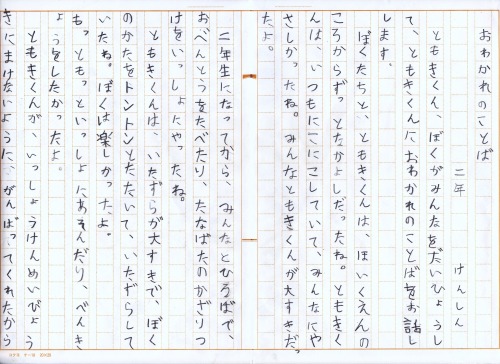 おわかれのことば
二年　けんしん
ともきくん、ぼくがみんなをだいひょうし
て、ともきくんにおわかれのことばをお話し
します。
ぼくたちと、ともきくんは、ほいくえんの
ころからずっとなかよしだったね。ともきく
んは、いつもにこにこしていて、みんなにや
さしかったね。みんなともきくんが大すきだっ
たよ。
二年生になってから、みんなとひろばで、
おべんとうをたべたり、たなばたのかざりつ
けをいっしょにやったね。
ともきくんは、いたずらが大すきで、ぼく
のかたをトントンとたたいて、いたずらして
いたね。ぼくは楽しかったよ。
もっともっといっしょにあそんだり、べんき
ょうをしたかったよ。
ともきくんが、いっしょうけんめいびょう
きにまけないように、がんばってくれたから